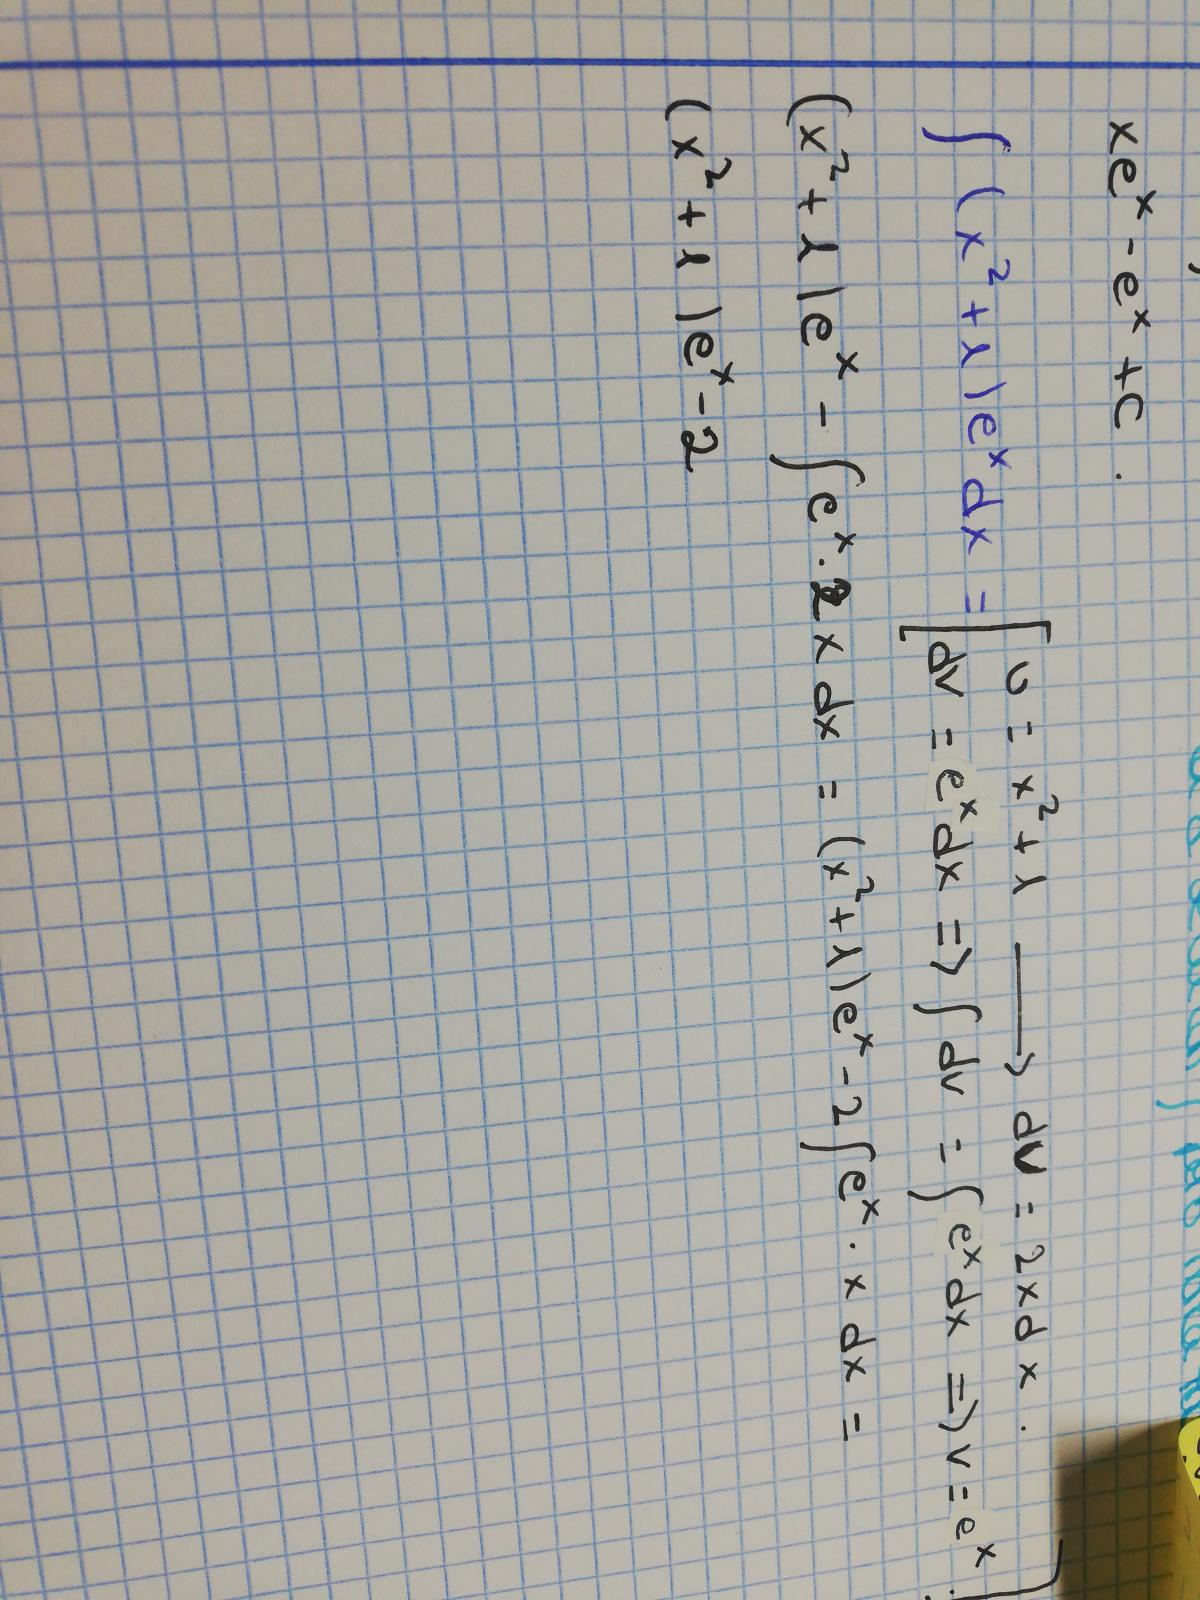 xeˣ - eˣ + c .
∫ (x² + 1) eˣ dx = [ u = x² + 1 ⟶ du = 2x dx .
dv = eˣ dx => ∫ dv = ∫ eˣ dx => v = eˣ . ]
(x² + 1) eˣ - ∫ eˣ . 2 x dx = (x² + 1) eˣ - 2 ∫ eˣ . x dx =
(x² + 1) eˣ - 2